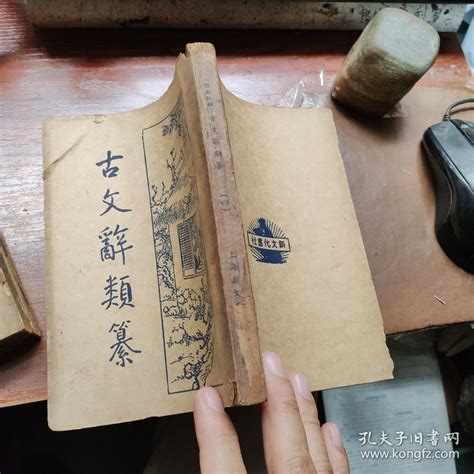 古文辭類纂
古文辭類纂
新文化書社
孔夫子旧书网
www.kongfz.com